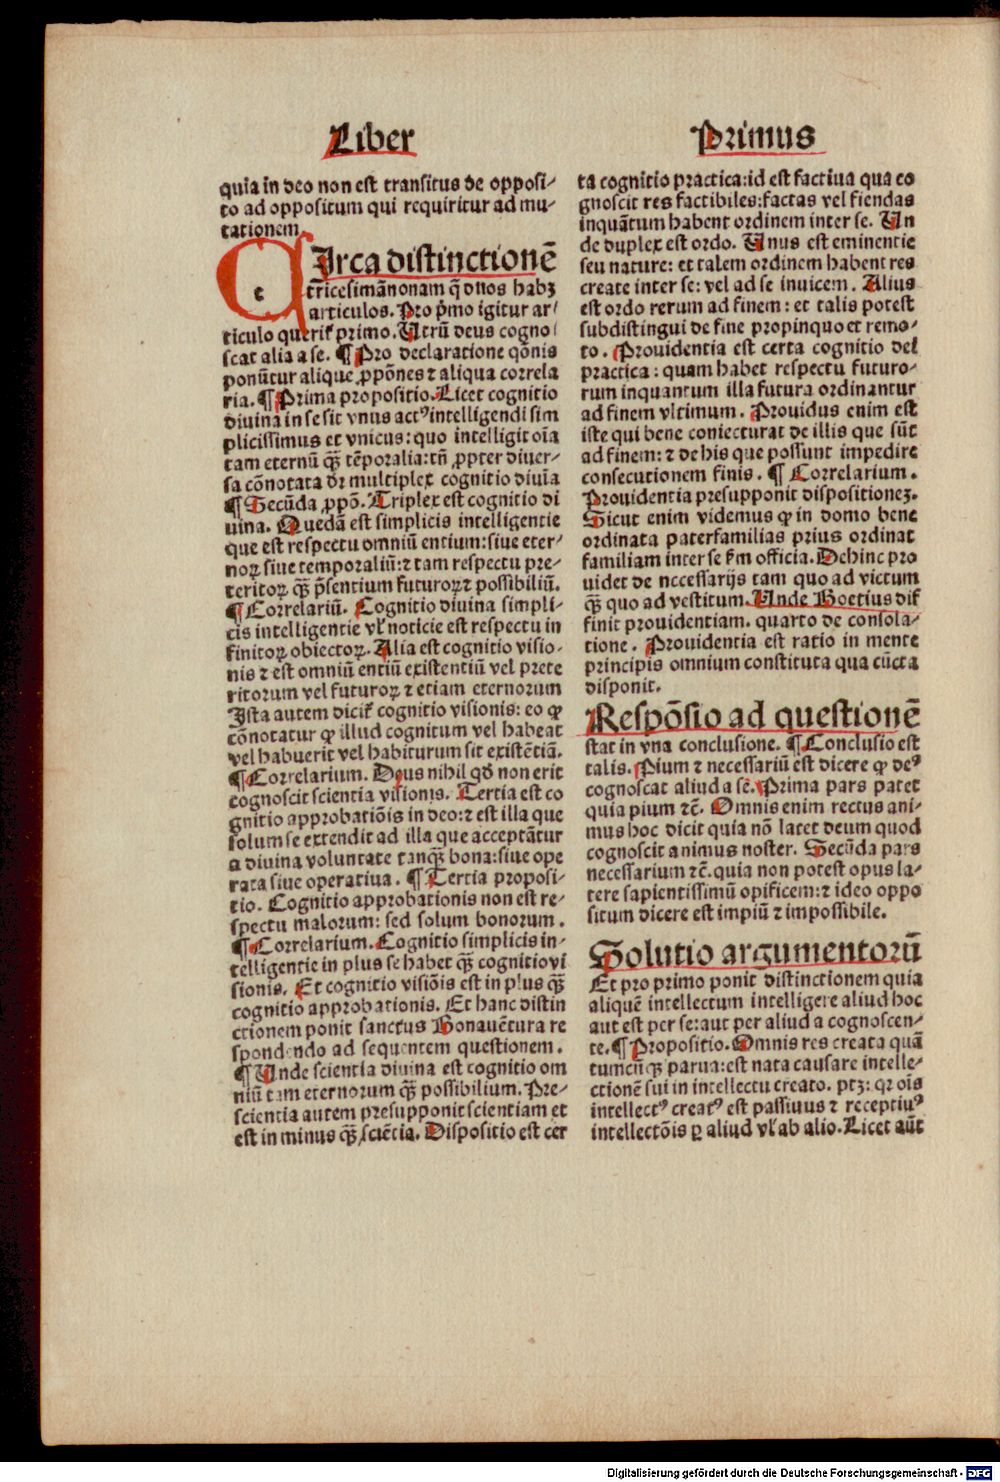 Liber
Primus
quia in deo non est transitus de opposi-
to ad oppositum qui requiritur ad mu-
tationem.
CIrca distinctionē
tr̄icesimānonam q̄ duos habꝫ
articulos. Pro p̄mo igitur ar-
ticulo querit᷑ primo. Utrū deus cogno
scat alia a se. ¶ Pro declaratione q̄onis
ponūtur alique ꝓpōnes ⁊ aliqua correla
ria. ¶ Prima propositio. Licet cognitio
diuina in se sit vnus actꝰ intelligendi sim
plicissimus et vnicus: quo intelligit oīa
tam eternū qᷓꝫ tēporalia: tn̄ ꝓpter diuer-
sa cōnotata dr̄ multiplex cognitio diuīa
¶ Secūda ꝓpō. Triplex est cognitio di
uina. Quedā est simplicis intelligentie
que est respectu omniū entium: siue eter-
noꝝ siue temporaliū: ⁊ tam respectu pre-
teritoꝝ qᷓꝫ p̄sentium futuroꝝ ⁊ possibiliū.
¶ Correlariū. Cognitio diuina simpli-
cis intelligentie vl̓ noticie est respectu in
finitoꝝ obiectoꝝ. Alia est cognitio visio-
nis ⁊ est omniū entiū existentiū vel prete
ritorum vel futuroꝝ ⁊ etiam eternorum
Ista autem dicit᷑ cognitio visionis: eo ꝙ
cōnotatur ꝙ illud cognitum vel habeat
vel habuerit vel habiturum sit existētiā.
¶ Correlarium. Deus nihil qd̓ non erit
cognoscit scientia visionis. Tertia est co
gnitio approbatiōis in deo: ⁊ est illa que
solum se extendit ad illa que acceptātur
a diuina voluntate tanqᷓꝫ bona: siue ope
rata siue operatiua. ¶ Tertia proposi-
tio. Cognitio approbationis non est re-
spectu malorum: sed solum bonorum.
¶ Correlarium. Cognitio simplicis in-
telligentie in plus se habet qᷓꝫ cognitio vi
sionis. Et cognitio visiōis est in plus qᷓꝫ
cognitio approbationis. Et hanc distin
ctionem ponit sanctus Bonauētura re
spondendo ad sequentem questionem.
¶ Unde scientia diuina est cognitio om
niū tam eternorum qᷓꝫ possibilium. Pre-
scientia autem presupponit scientiam et
est in minus qᷓꝫ sciētia. Dispositio est cer
ta cognitio practica: id est factiua qua co
gnoscit res factibiles: factas vel fiendas
inquātum habent ordinem inter se. Un
de duplex est ordo. Unus est eminentie
seu nature: et talem ordinem habent res
create inter se: vel ad se inuicem. Alius
est ordo rerum ad finem: et talis potest
subdistingui de fine propinquo et remo-
to. Prouidentia est certa cognitio dei
practica: quam habet respectu futuro-
rum inquantum illa futura ordinantur
ad finem vltimum. Prouidus enim est
iste qui bene coniecturat de illis que sūt
ad finem: ⁊ de his que possunt impedire
consecutionem finis. ¶ Correlarium.
Prouidentia presupponit dispositionēꝫ.
Sicut enim videmus ꝙ in domo bene
ordinata paterfamilias prius ordinat
familiam inter se ẜm officia. Dehinc pro
uidet de necessarijs tam quo ad victum
qᷓꝫ quo ad vestitum. Unde Boetius dif
finit prouidentiam. quarto de consola-
tione. Prouidentia est ratio in mente
principis omnium constituta qua cūcta
disponit.
Respōsio ad questionē
stat in vna conclusione. ¶ Conclusio est
talis. Pium ⁊ necessariū est dicere ꝙ deꝰ
cognoscat aliud a sē. Prima pars patet
quia pium ⁊c̄. Omnis enim rectus ani-
mus hoc dicit quia nō latet deum quod
cognoscit animus noster. Secūda pars
necessarium ⁊c̄. quia non potest opus la-
tere sapientissimū opificem: ⁊ ideo oppo
situm dicere est impiū ⁊ impossibile.
Solutio argumentorū
Et pro primo ponit distinctionem quia
aliquē intellectum intelligere aliud hoc
aut est per se: aut per aliud a cognoscen-
te. ¶ Propositio. Omnis res creata quā
tumcūqꝫ parua: est nata causare intelle-
ctionē sui in intellectu creato. ptꝫ: qꝛ oīs
intellectꝰ creatꝰ est passiuus ⁊ receptiuꝰ
intellectōis ꝑ aliud vl̓ ab alio. Licet aūt
Digitalisierung gefördert durch die Deutsche Forschungsgemeinschaft - DFG